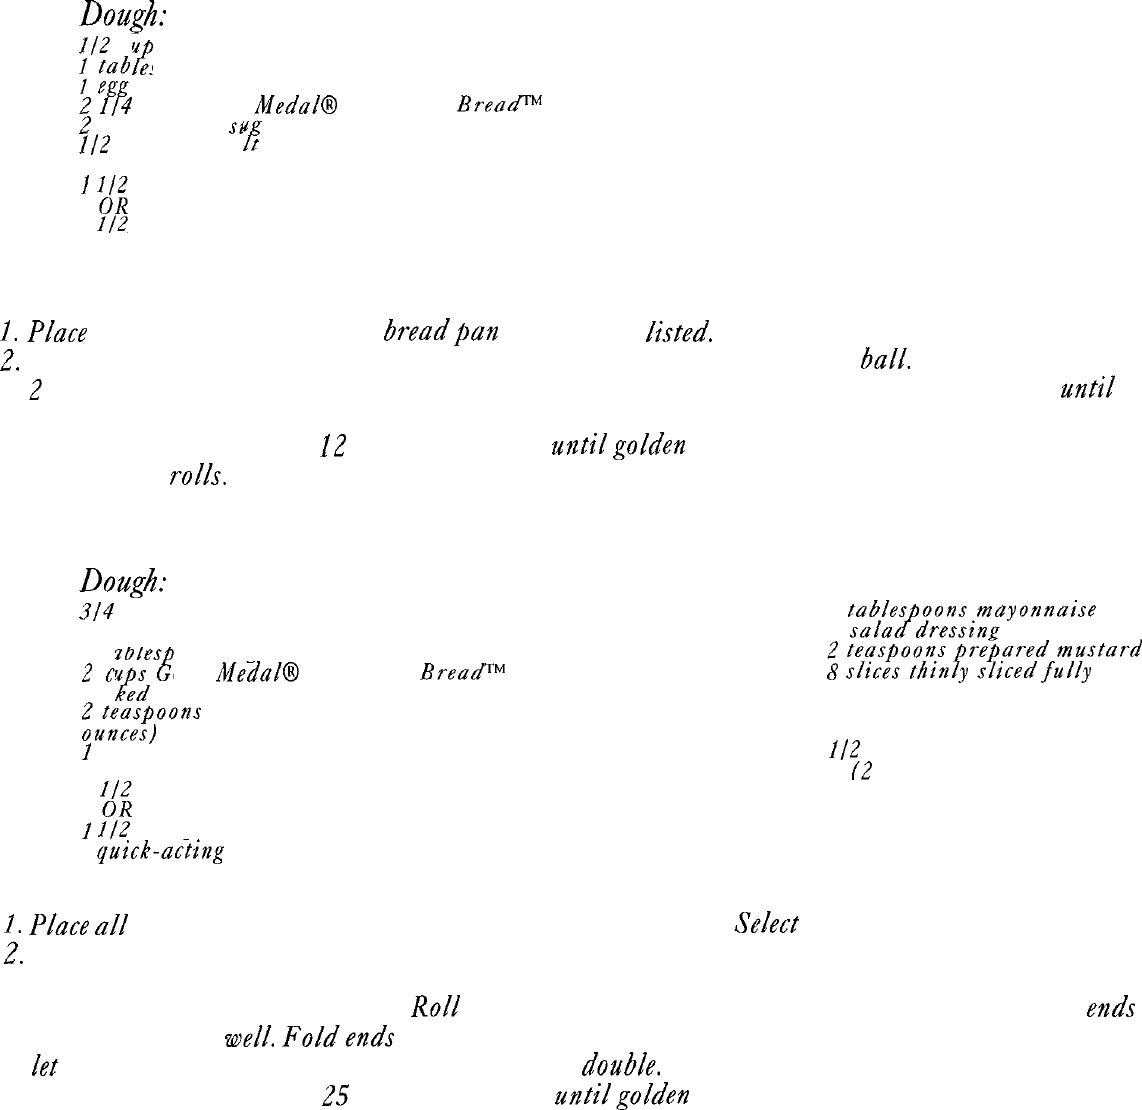 Dough:
1/2 up
1 table
1 egg
2 1/4 Medal® Bread™
2 sug
1/2 lt
1 1/2
OR
1/2
1. Place bread pan listed.
2. ball.
2 until
12 until golden
rolls.
Dough:
3/4 tablespoons mayonnaise
salad dressing
ablesp 2 teaspoons prepared mustard
2 cups G Medal® Bread™ 8 slices thinly sliced fully
ked
2 teaspoons
ounces)
1 1/2
(2
1/2
OR
1 1/2
quick-acting
1. Place all Select
2.
Roll ends
well. Fold ends
let double.
25 until golden